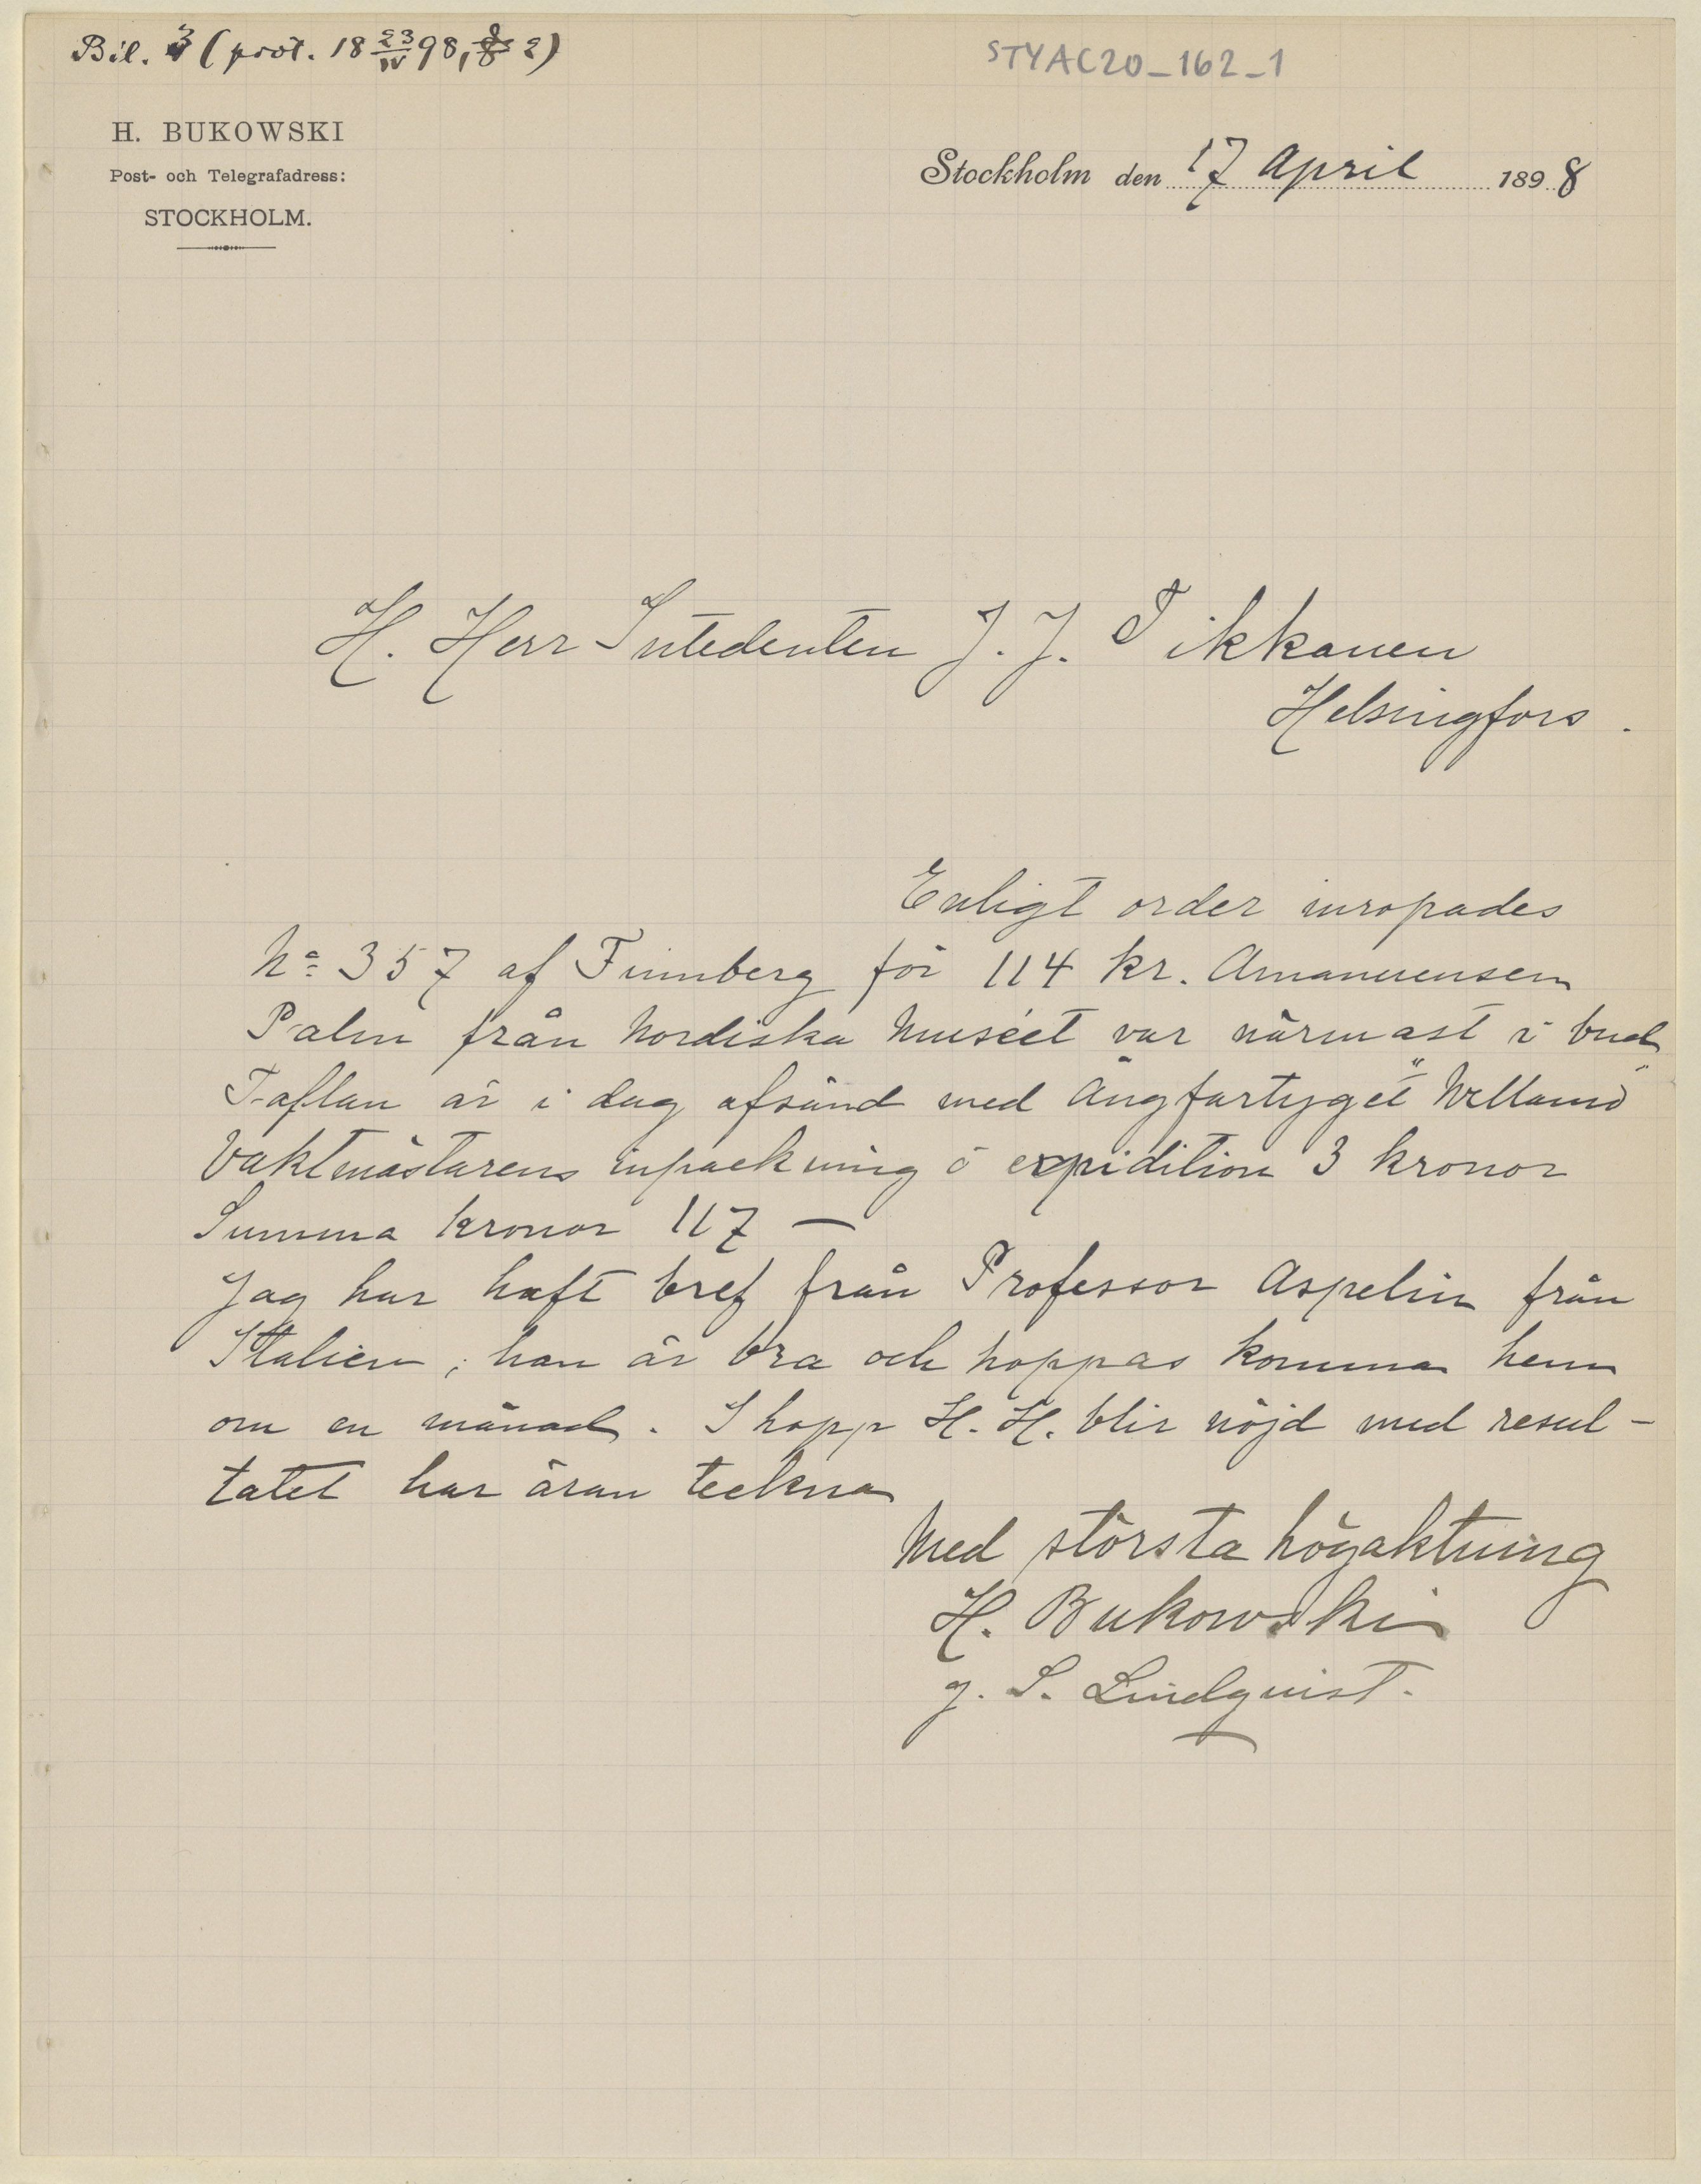 Bil. 3 (prot. 18 23/IV 98, 2)
STYAC20_162_1
H. BUKOWSKI
Post- och Telegrafadress:
STOCKHOLM.
Stockholm den 17 April 1898
H. Herr Intedenten J. J. Tikkanen
Helsingfors.
Enligt order inropades
No 357 af Finnberg för 114 kr. Amanuensen
Palm från Nordiska Muséet var närmast i bud
Taflan är i dag afsänd med Ångfartyget "Wellamo"
Vaktmästarens inpackning o expidition 3 kronor
Summa kronor 117 —
Jag har haft bref från Professor Aspelin från
Italien, han är bra och hoppas komma hem
om en månad. I hopp H. H. blir nöjd med resul-
tatet har äran teckna
Med största högaktning
H. Bukowski
g. S. Lindquist.